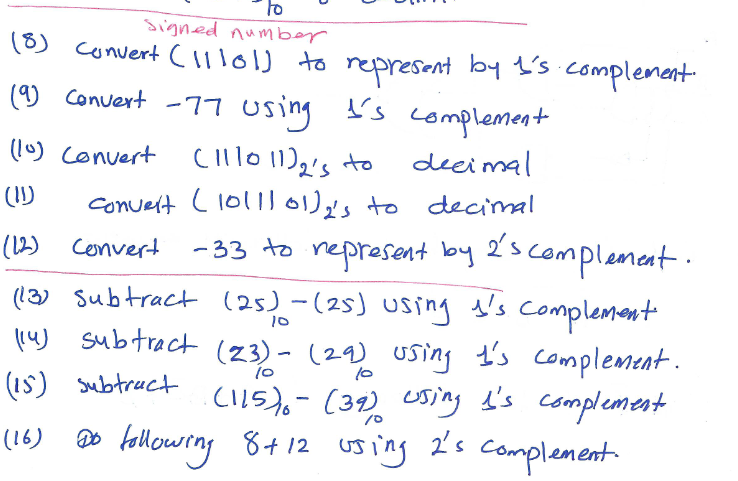 10
signed number
(8) Convert (11101) to represent by 1's complement.
(9) Convert -77 using 1's complement
(10) Convert (111011)2's to decimal
(11) Convert (1011101)2's to decimal
(12) Convert -33 to represent by 2's complement.
(13) Subtract (25)10 - (25) using 1's complement
(14) Subtract (23)10 - (29)10 using 1's complement.
(15) subtract (115)10 - (39)10 using 1's complement
(16) Do following 8+12 using 2's complement.